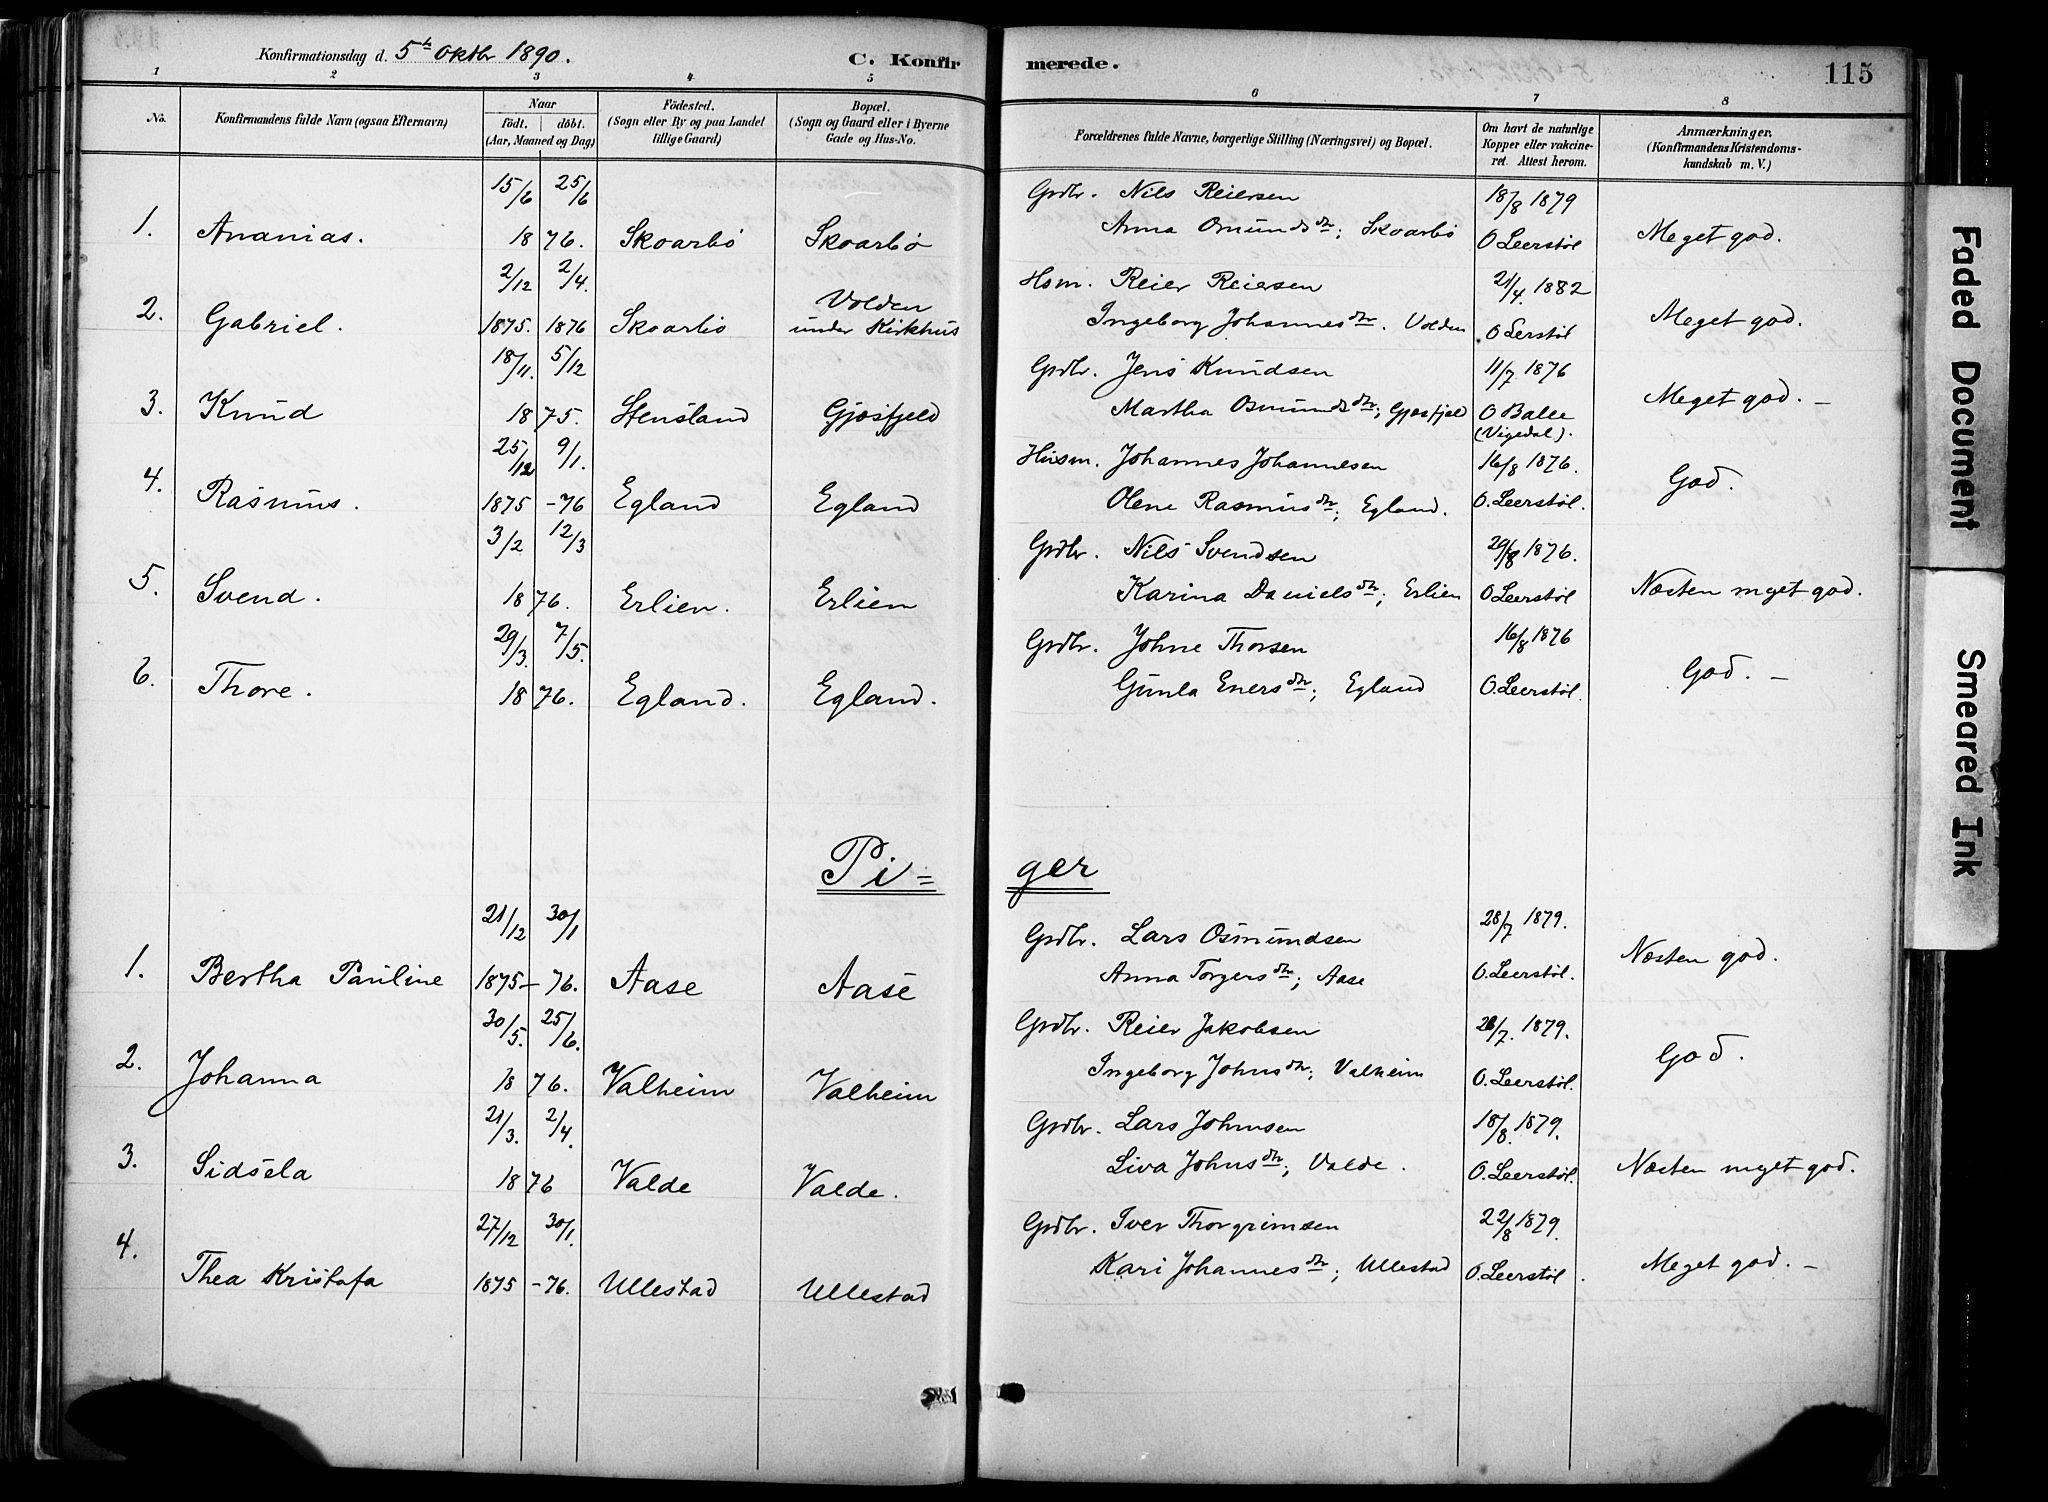 Konfirmationsdag d. 5te Oktbr 1890.
C. Konfirmerede.
115
1 2 3 4 5 6 7 8
No.
Konfirmandens fulde Navn (ogsaa Efternavn)
Naar
födt. döbt.
(Aar, Maaned og Dag)
Födested.
(Sogn eller By og paa Landet
tillige Gaard)
Bopæl.
(Sogn og Gaard eller i Byerne
Gade og Hus-No.
Forældrenes fulde Navne, borgerlige Stilling (Næringsvei) og Bopæl.
Om havt de naturlige
Kopper eller vakcine-
ret. Attest herom.
Anmærkninger.
(Konfirmandens Kristendoms-
kundskab m. V.)
15/6 25/6 Grdbr. Nils Reiersen 18/8 1879
1. Ananias. 1876. Skoarbö Skoarbö Anna Omundsdtr; Skoarbö O Leerstöl Meget god.
2/12 2/4. Volden Hsm. Reier Reiersen 21/4. 1882
2. Gabriel. 1875. 1876 Skoarbö under Kirkhus Ingeborg Johannesdtr. Volden O Lerstöl Meget god.
18/11. 5/12 Grdbr. Jens Knudsen 11/7 1876
3. Knud 1875. Stensland Gjösfjeld Martha Osmundsdtr; Gjösfjeld O Balle Meget god. -
(Vigedal).
25/12 9/1. Husm. Johannes Johannesen 16/8 1876.
4. Rasmus. 1875 -76 Egland Egland Olene Rasmusdtr; Egland. O. Leerstöl. God.
3/2 12/3 Grdbr. Nils Svendsen 29/8 1876.
5. Svend. 1876. Erlien. Erlien Karina Danielsdtr; Erlien O Leerstöl Næsten meget god.
29/3. 7/5. Grdbr. Johne Thorsen 16/8 1876
6. Thore. 1876. Egland. Egland. Gunla Enersdtr; Egland O. Leerstöl. God. -
Pi= ger
21/12 30/1 Grdbr. Lars Osmundsen 28/7 1879.
1. Bertha Pauline 1875- 76. Aase Aase Anna Torgersdtr; Aase O. Leerstöl. Næsten god.
30/5. 25/6. Grdbr. Reier Jakobsen 28/7. 1879.
2. Johanna 1876. Valheim Valheim Ingeborg Johnsdtr; Valheim O. Leerstöl. God.
21/3. 2/4. Grdbr. Lars Johnsen 18/8. 1879.
3. Sidsela 1876 Valde Valde. Liva Johnsdtr; Valde. O. Leerstöl. Næsten meget god.
27/12 30/1. Grdbr. Iver Thorgrimsen 22/8 1879.
4. Thea Kristofa 1875 -76. Ullestad Ullestad Kari Johannesdtr; Ullestad O. Leerstöl. Meget god. -
Faded Document
Smeared Ink